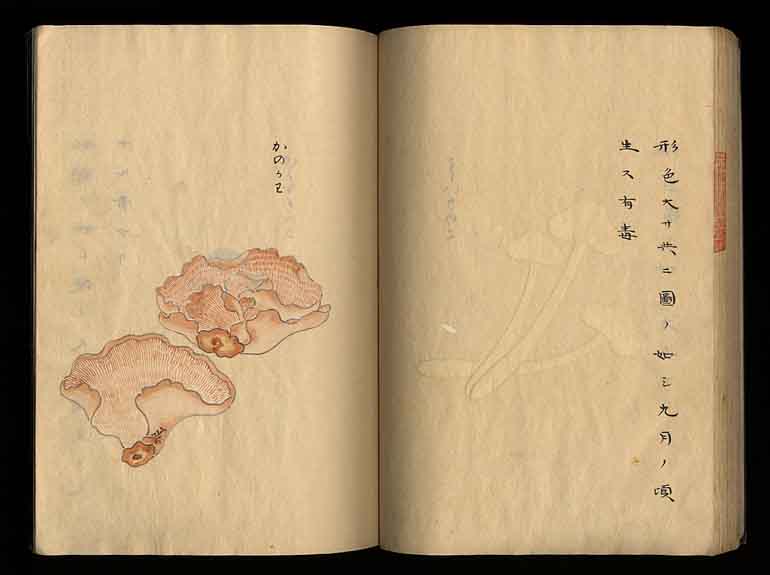 形色大サ共ニ圖ノ如シ九月ノ頃
生ス有毒
かのかわ